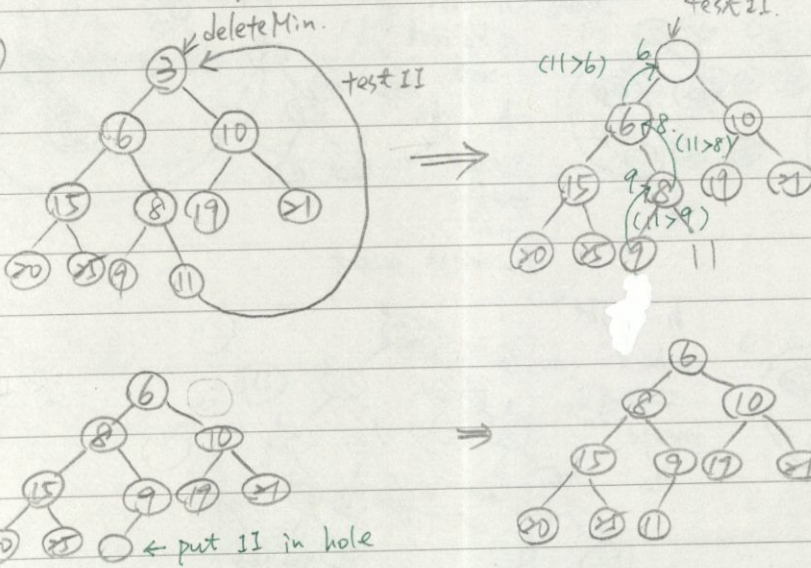 deleteMin.
3
test 11
6 10
15 8 19 21
20 25 9 11
⇒
test 11.
(11>6) 6
6 8. 10
(11>8)
15 9 8 19 21
(11>9)
20 25 9 11
6
8 10
15 9 19 21
25 ← put 11 in hole
⇒
6
8 10
15 9 19 21
20 25 11